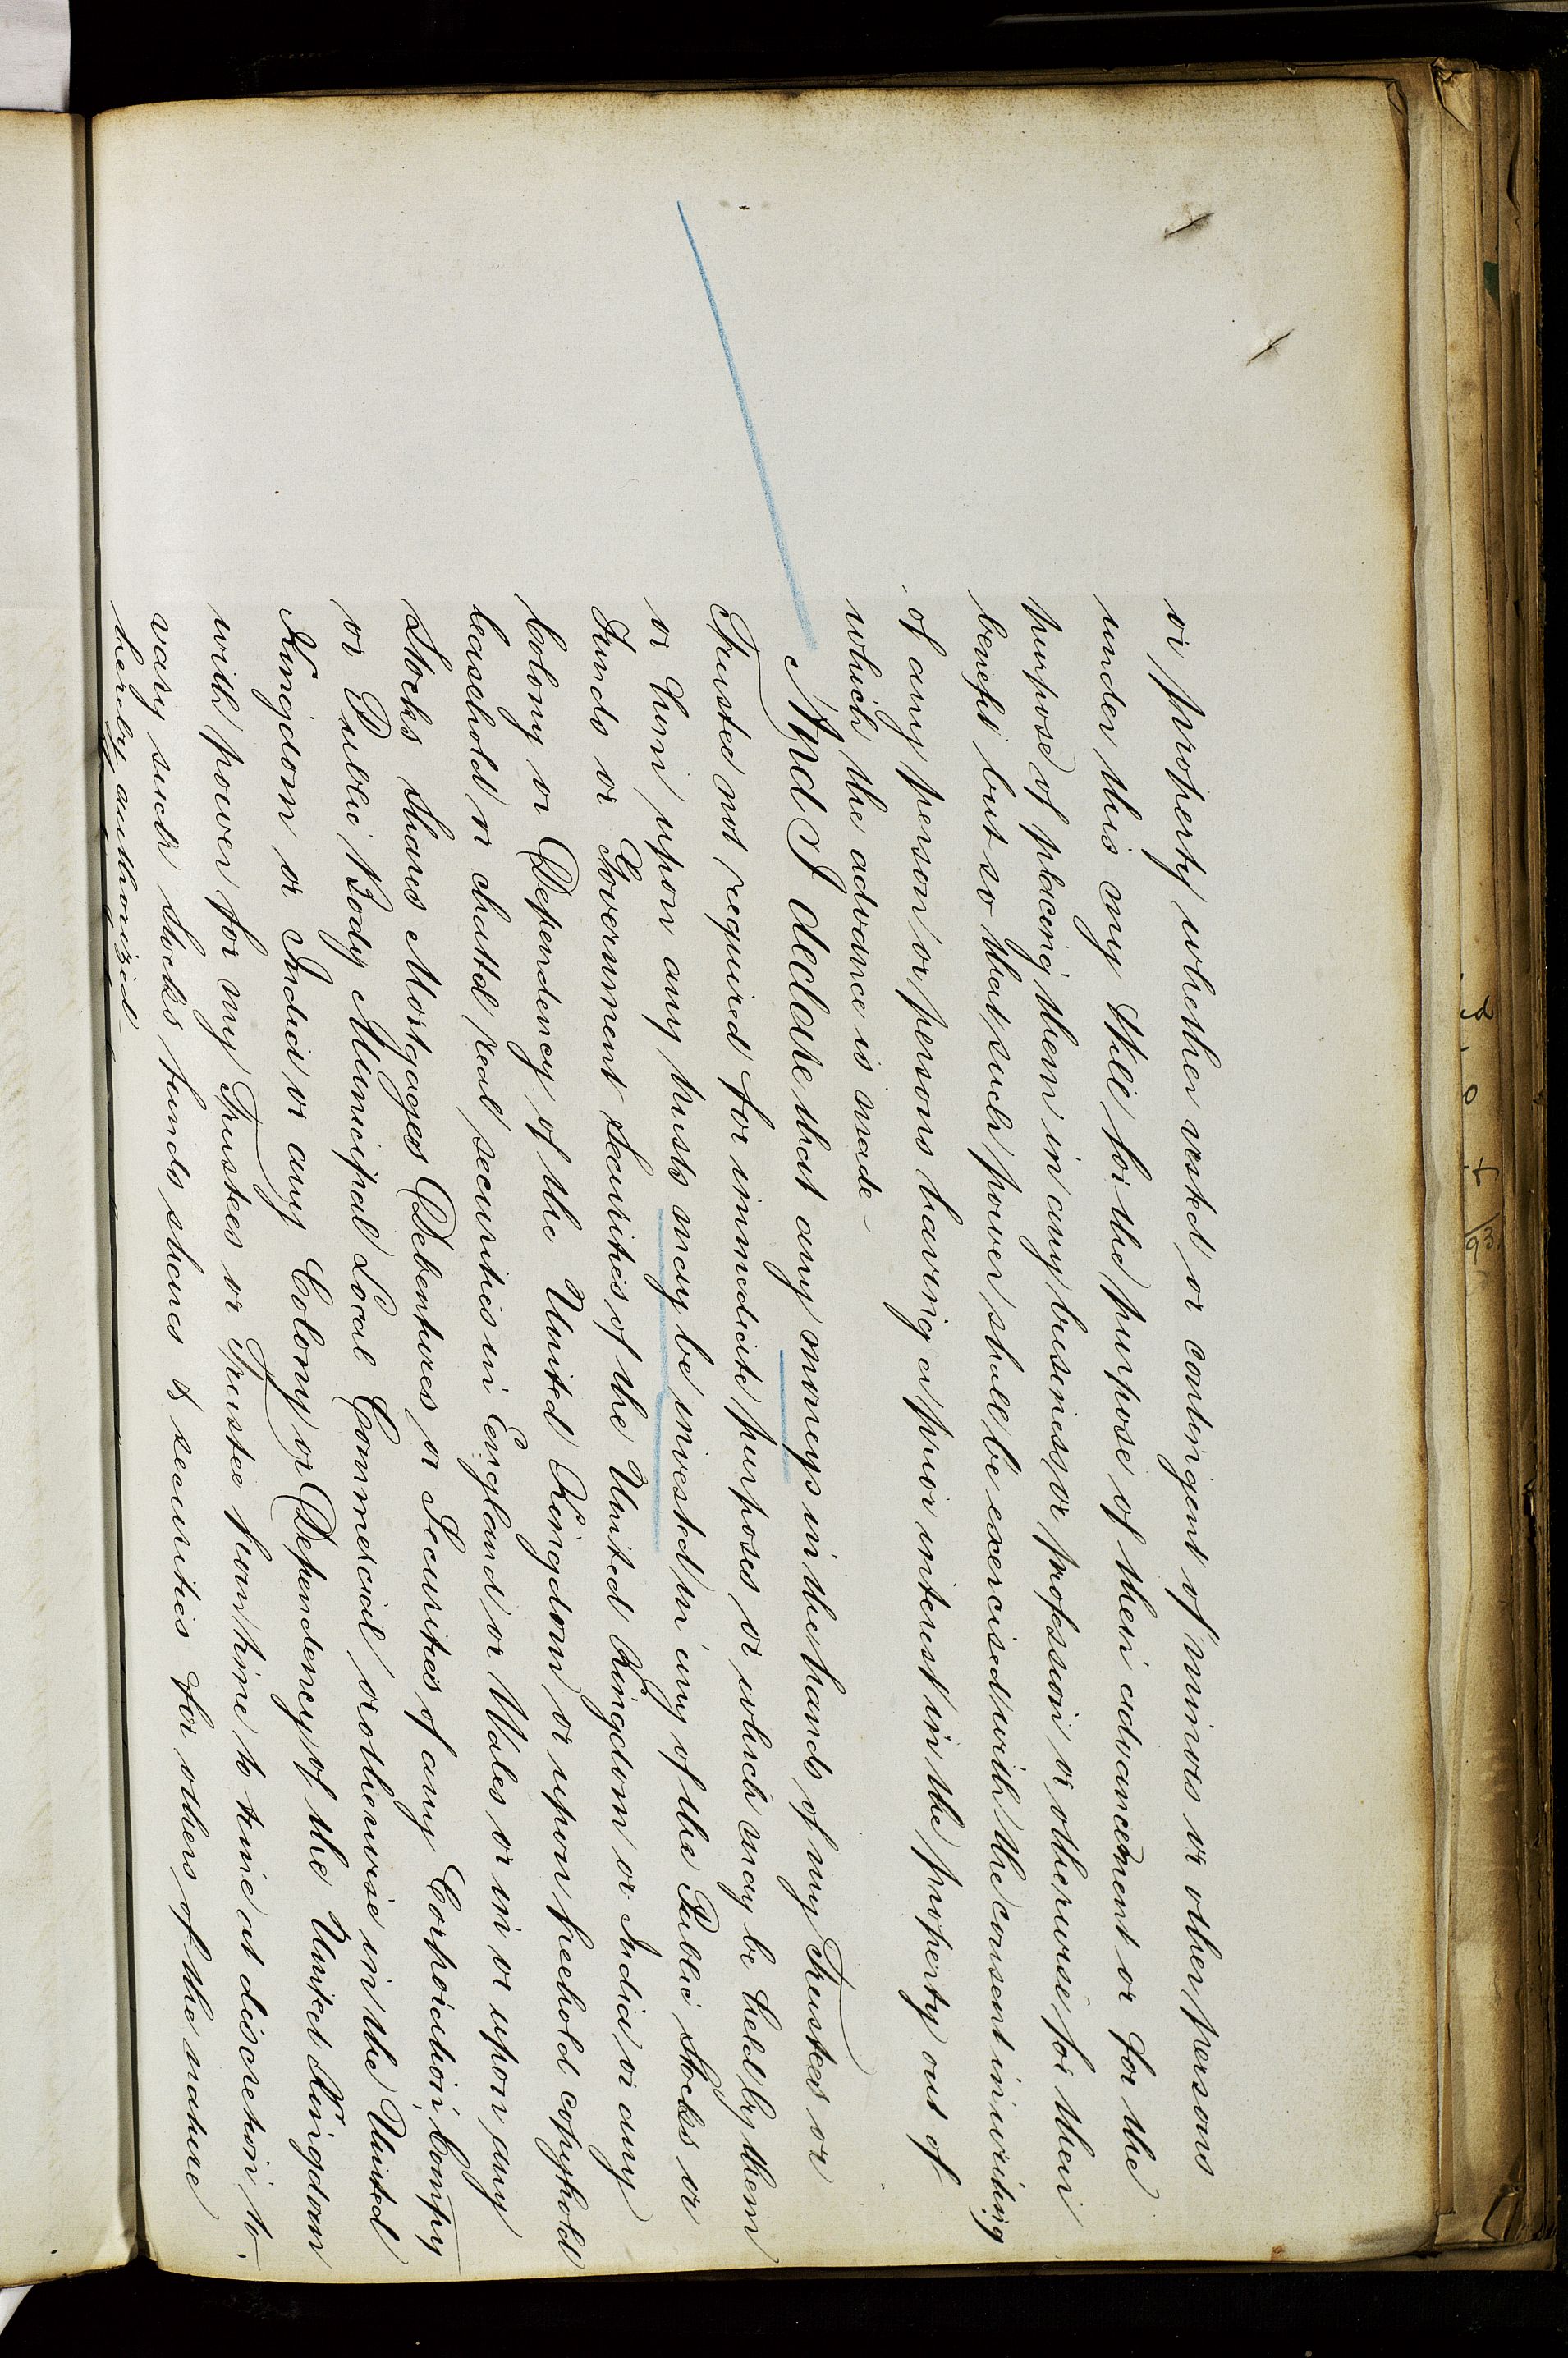 or property whether vested or contingent of minors or other persons
under this my Will for the purpose of their advancement or for the
purpose of placing them in any business or profession or otherwise for their
benefit but so that such power shall be exercised with the consent in writing
of any person or persons having a prior interest in the property out of
which the advance is made -
And I declare that any moneys in the hands of my Trustees or
Trustee not required for immediate purposes or which may be held by them
or him upon any trusts may be invested in any of the Public Stocks or
Funds or Government Securities of the United Kingdom or India or any
Colony or Dependency of the United Kingdom or upon freehold copyhold
leasehold or chattel real securities in England or Wales or in or upon any
Stocks Shares Mortgages Debentures or Securities of any Corporation Compy
or Public Body Municipal Local Commercial or otherwise in the United
Kingdom or India or any Colony or Dependency of the United Kingdom
with power for my Trustees or Trustee from time to time at discretion to
vary such stocks funds shares & securities for others of the nature
hereby authorized